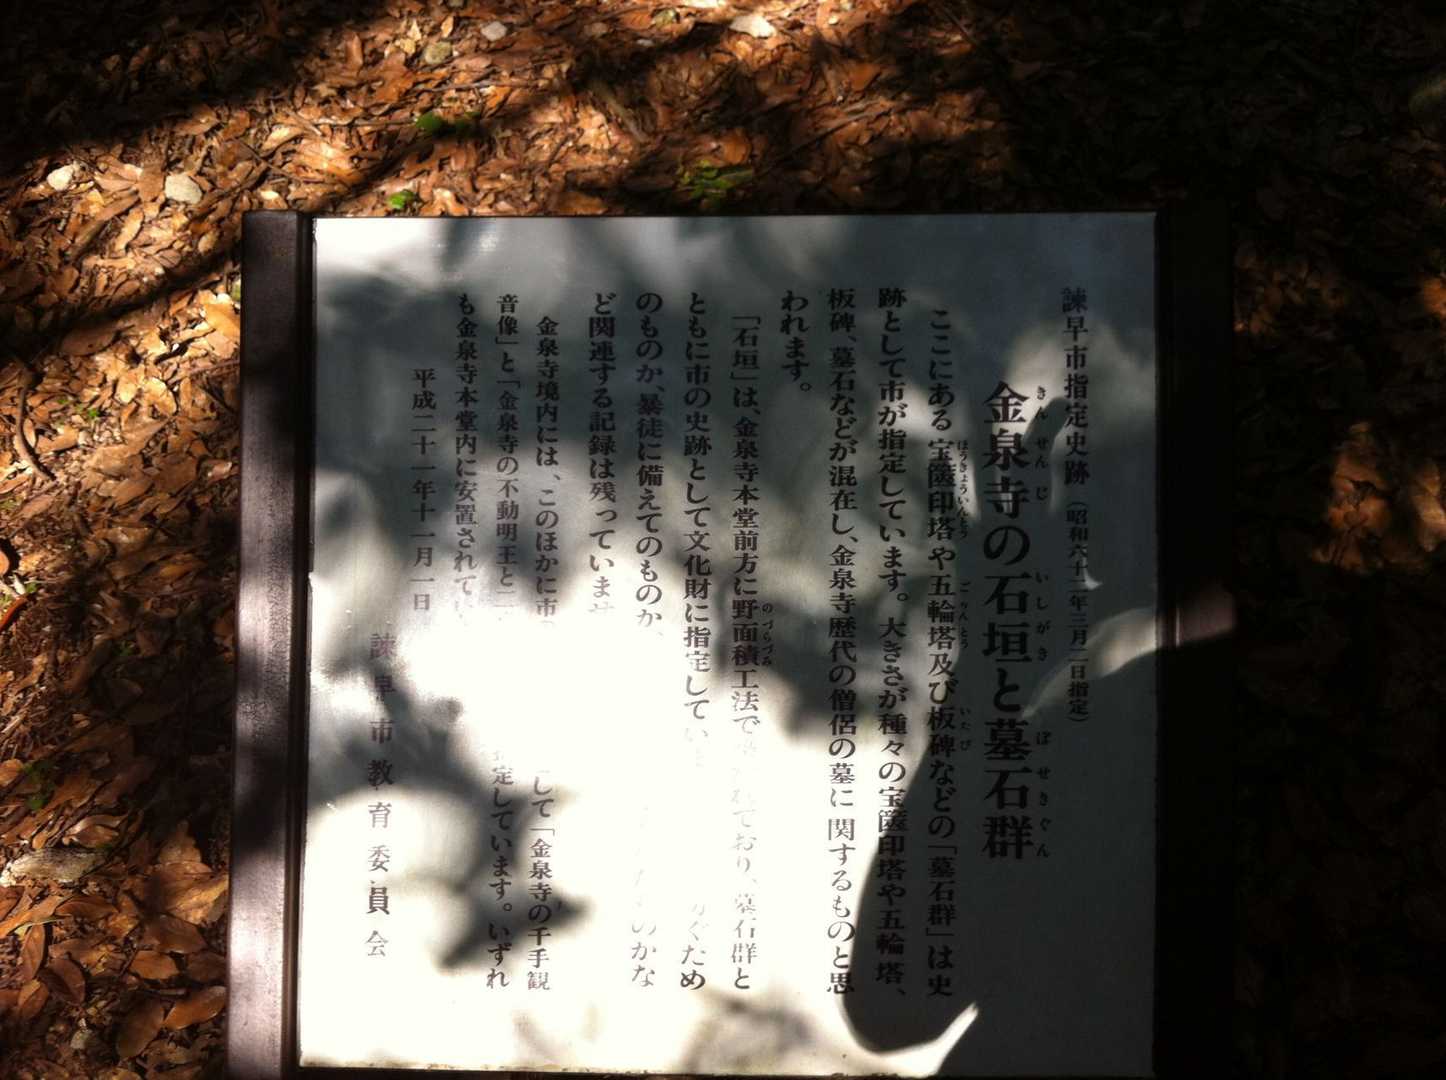 諫早市指定史跡（昭和六十二年三月二日指定）
きんせんじ いしがき ぼせきぐん
金泉寺の石垣と墓石群
ほうきょういんとう ごりんとう いたび
ここにある宝篋印塔や五輪塔及び板碑などの「墓石群」は史
跡として市が指定しています。大きさが種々の宝篋印塔や五輪塔、
板碑、墓石などが混在し、金泉寺歴代の僧侶の墓に関するものと思
われます。
のづらづみ
「石垣」は、金泉寺本堂前方に野面積工法で れており、墓石群と
ともに市の史跡として文化財に指定してい ぐため
のものか、暴徒に備えてのものか、 のかな
ど関連する記録は残っていませ
金泉寺境内には、このほかに市 して「金泉寺の千手観
音像」と「金泉寺の不動明王と二 定しています。いずれ
も金泉寺本堂内に安置されて
平成二十一年十一月一日
諫早市教育委員会